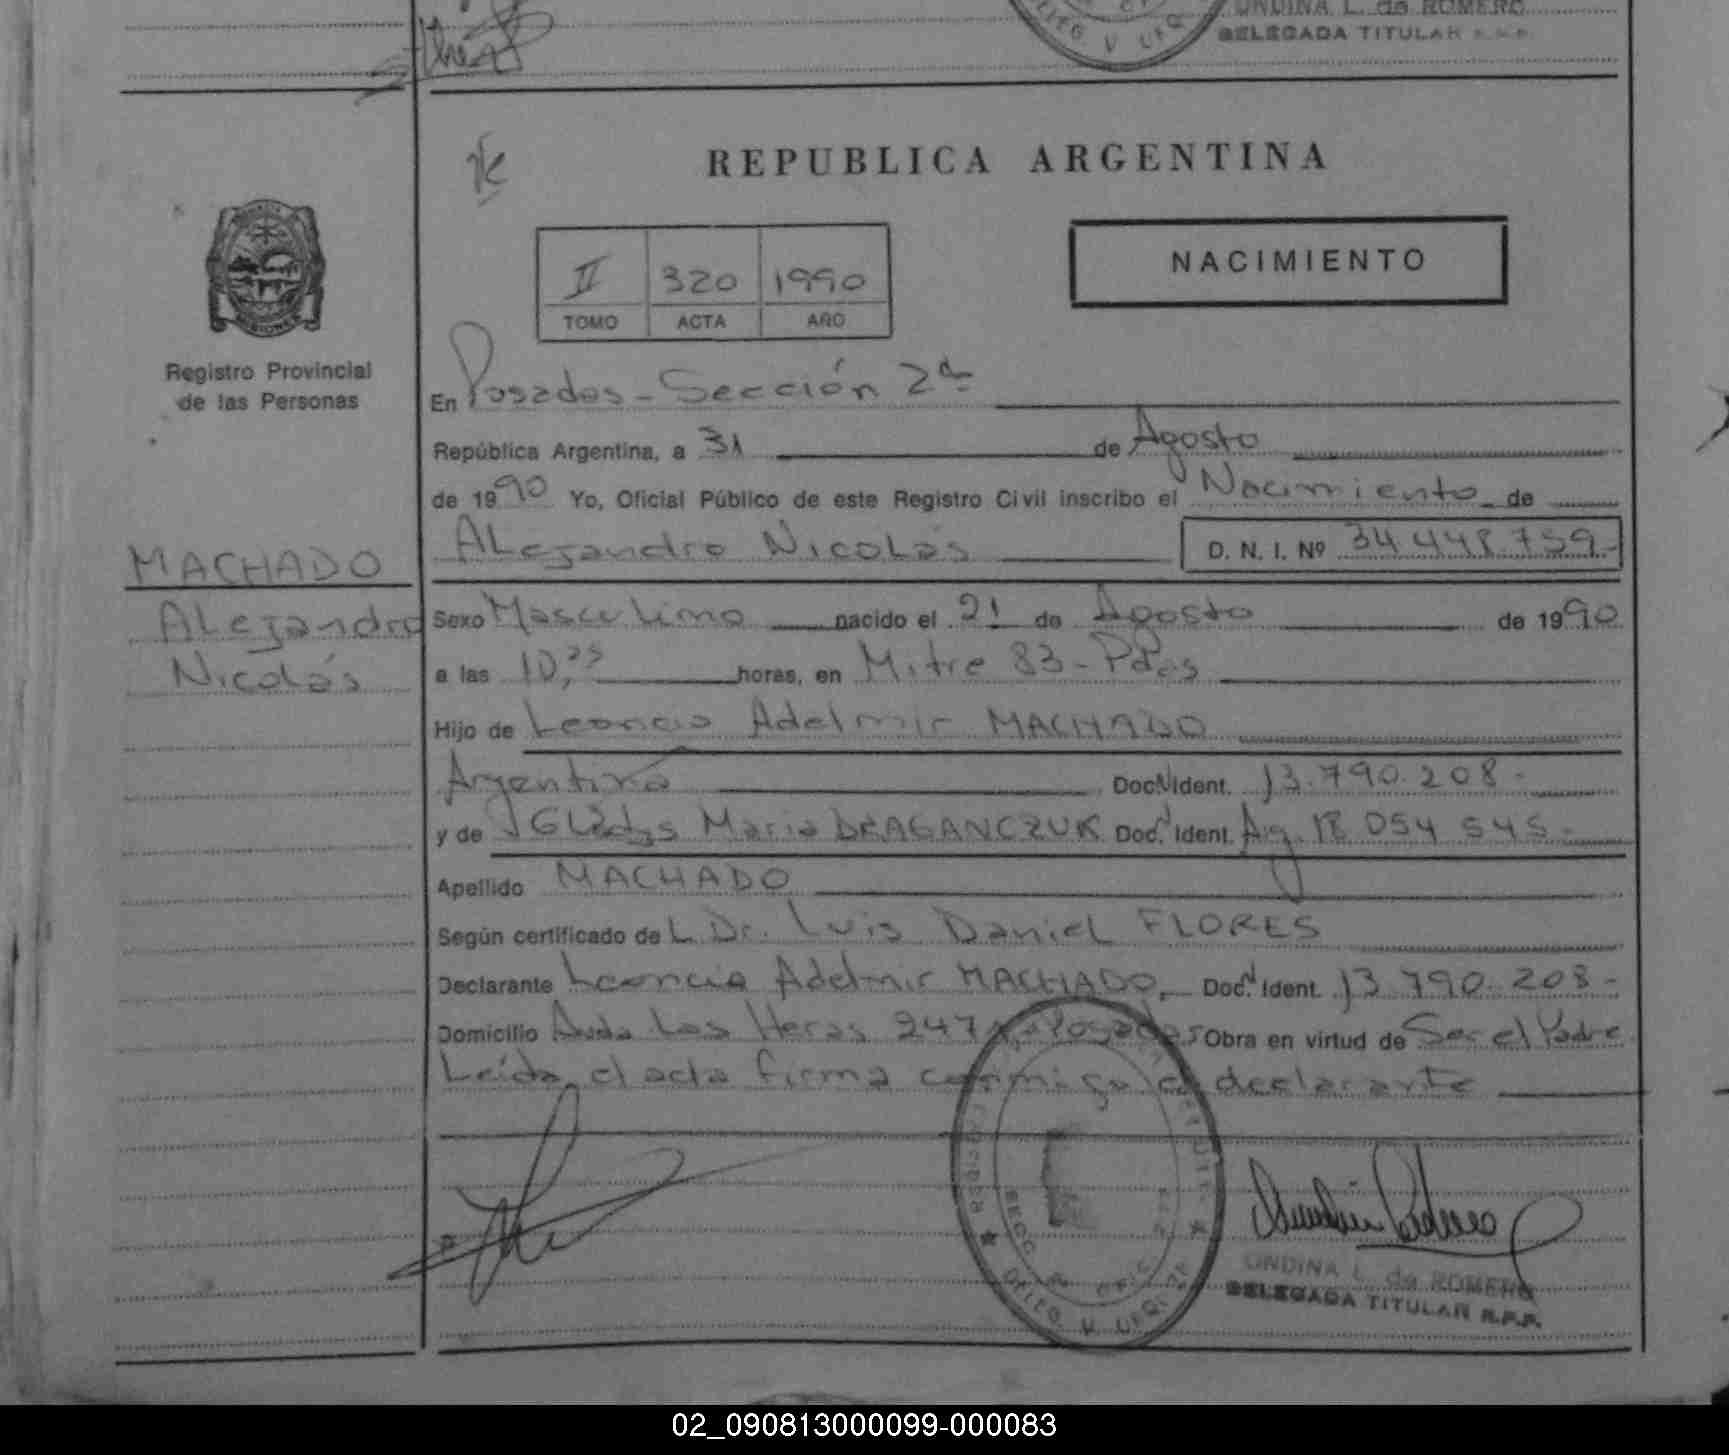 ONDINA L. de ROMERO
DELEGADA TITULAR R.P.P.
REPUBLICA ARGENTINA
NACIMIENTO
II 320 1990
TOMO ACTA AÑO
Registro Provincial
de las Personas
En Posadas - Sección 2da
República Argentina, a 31 de Agosto
de 1990 Yo, Oficial Público de este Registro Civil inscribo el Nacimiento de
Alejandro Nicolás D. N. I. Nº 34.448.759-
MACHADO
Alejandro
Nicolás
Sexo Masculino nacido el 21 de Agosto de 1990
a las 10, horas, en Mitre 83 - Pdas
Hijo de Leoncio Adelmir MACHADO
Argentina Doc. N Ident. 13.790.208-
y de Gladys Maria DRAGANCZUK Doc. N Ident. Arg. 18 054 545-
Apellido MACHADO
Según certificado de L Dr. Luis Daniel FLORES
Declarante Leoncio Adelmir MACHADO, Doc. N Ident. 13 790.208-
Domicilio Avda Las Heras 247 Posadas Obra en virtud de Ser el Padre
Leída el acta firma conmigo el declarante
ONDINA L. de ROMERO
DELEGADA TITULAR R.P.P.
02_090813000099-000083